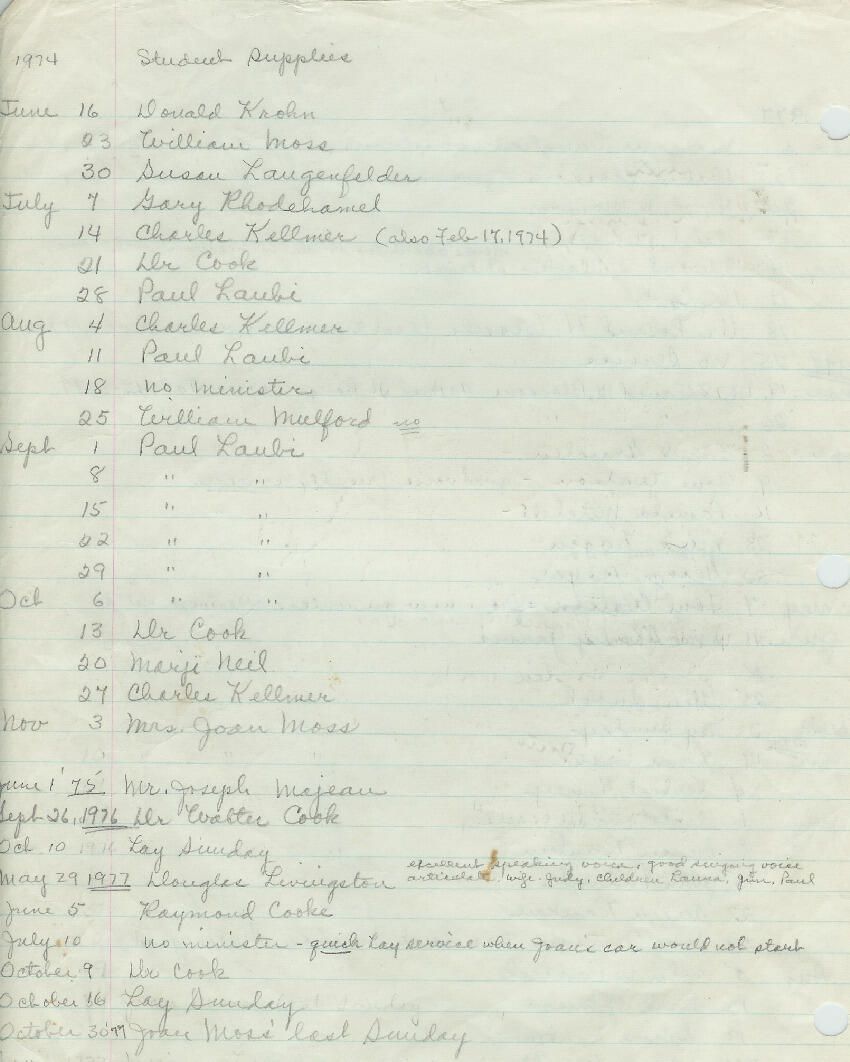 1974 Student Supplies
June 16 Donald Krohn
23 William Moss
30 Susan Laugenfelder
July 7 Gary Rhodehamel
14 Charles Kellmer (also Feb 17, 1974)
21 Dr Cook
28 Paul Laubi
Aug 4 Charles Kellmer
11 Paul Laubi
18 no minister
25 William Mulford no
Sept 1 Paul Laubi
8 " "
15 " "
22 " "
29 " "
Oct 6 " "
13 Dr Cook
20 Marji Neil
27 Charles Kellmer
Nov 3 Mrs. Joan Moss
June 1 '75 Mr. Joseph Majeau
Sept 26, 1976 Dr Walter Cook
Oct 10 1976 Lay Sunday
excellent speaking voice, good singing voice
May 29 1977 Douglas Livingston articulate. wife-Judy, children Lanna, Jim, Paul
June 5 Raymond Cooke
July 10 no minister - quick Lay service when Joan's car would not start
October 9 Dr Cook
October 16 Lay Sunday
October 30 '77 Joan Moss' last Sunday